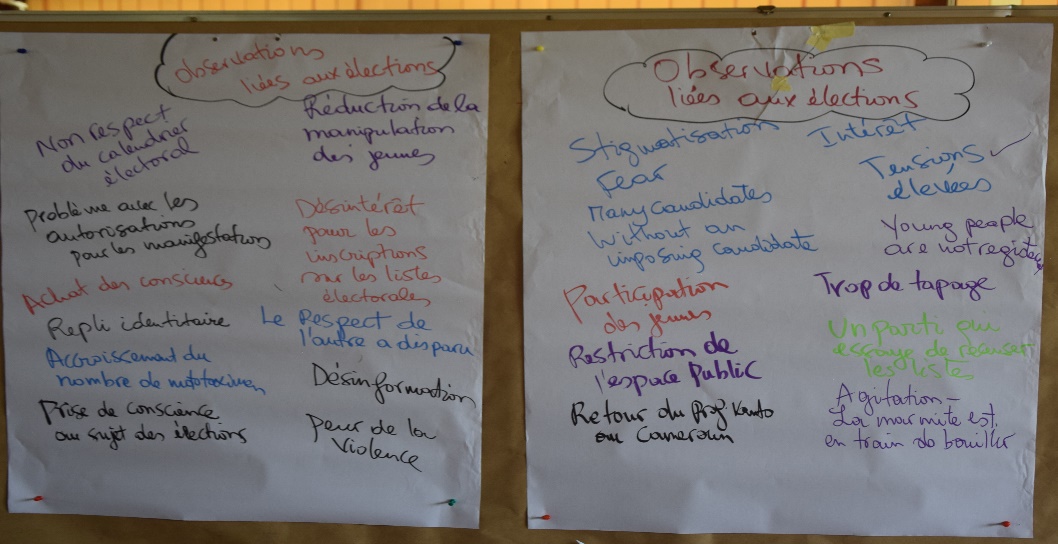 Observations
liées aux élections
Non respect
du calendrier
électoral
Problème avec les
autorisations
pour les manifestations
Achat des consciences
Repli identitaire
Accroissement du
nombre de mototaximen
Prise de conscience
au sujet des élections
Réduction de la
manipulation
des jeunes
Désintérêt
pour les
inscriptions
sur les listes
électorales
Le Respect de
l'autre a disparu
Désinformation
Peur de la
Violence
Observations
liées aux élections
Stigmatisation
Fear
Many candidates
Without an
imposing candidate
Participation
des jeunes
Restriction de
l'espace Public
Retour du Prof Kamto
au Cameroun
Intérêt
Tensions
élevées
Young people
are not
Trop de tapage
Un parti qui
essaye de récuser
les listes
Agitation -
La marmite est
en train de bouillir